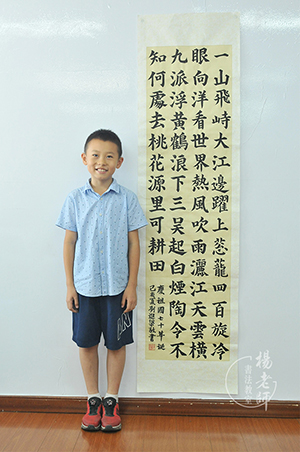 一山飛峙大江邊躍上葱蘢四百旋冷
眼向洋看世界熱風吹雨灑江天雲橫
九派浮黃鶴浪下三吳起白煙陶令不
知何處去桃花源里可耕田
慶祖國七十華誕
己亥夏劉書
楊老師
書法教室